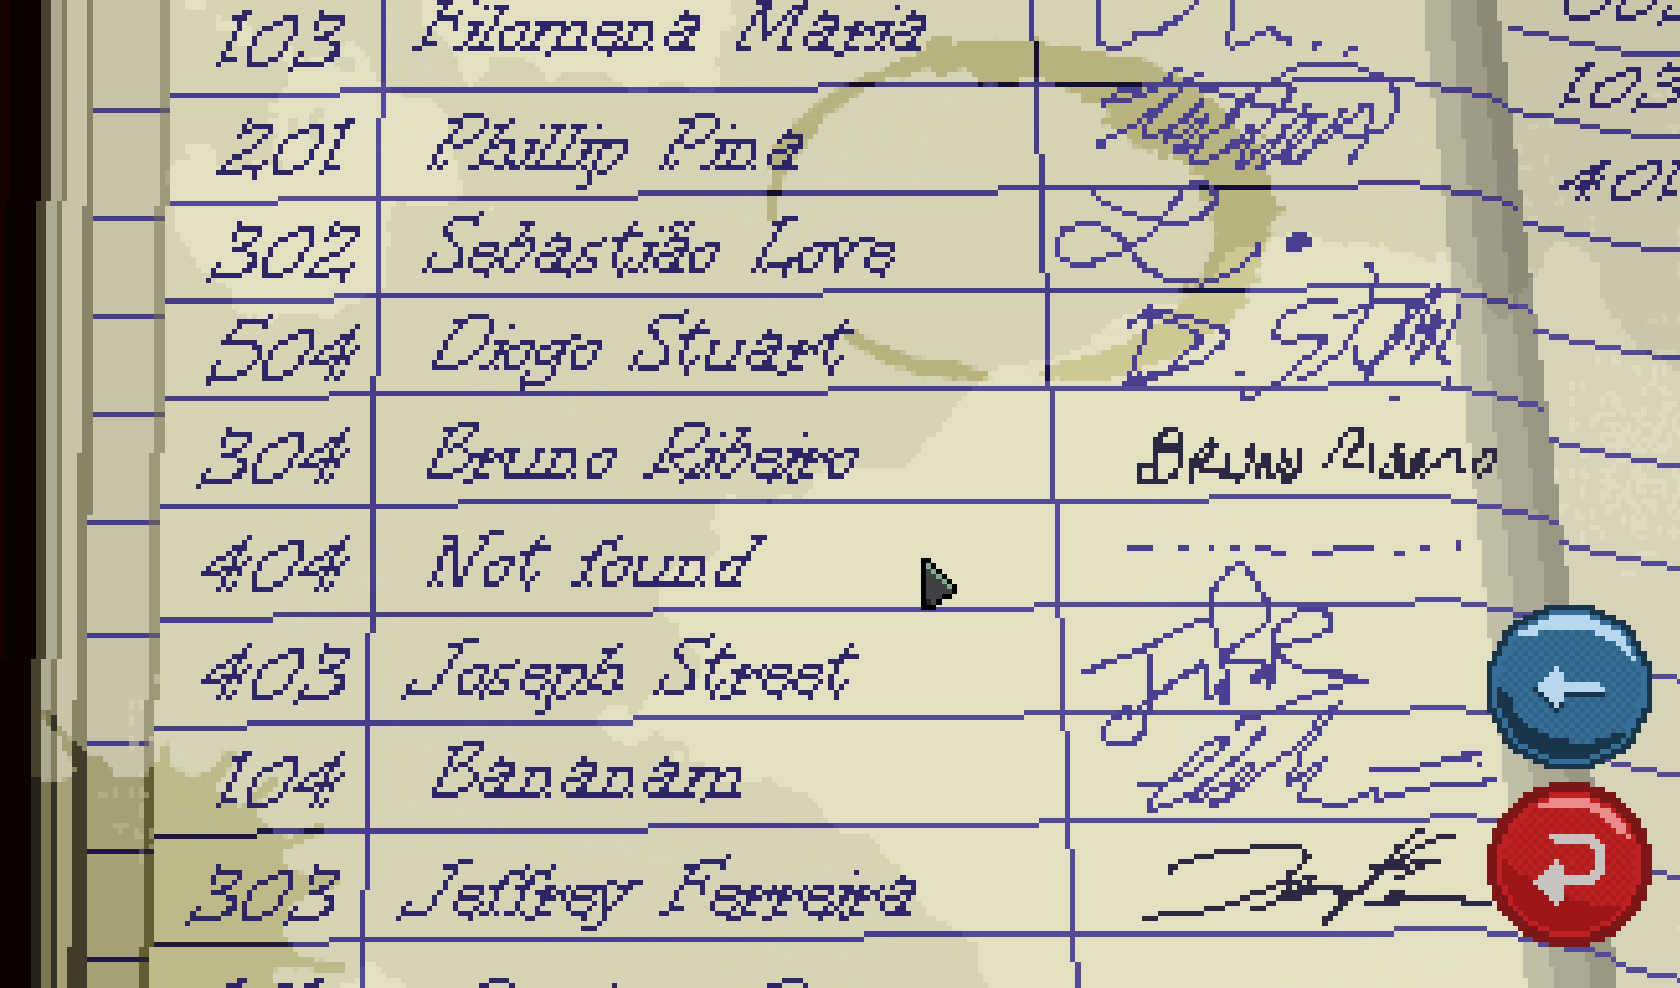 103 Filomena Maria
201 Phillip Pina
302 Sebastião Love
504 Diogo Stuart
304 Bruno Ribeiro
404 Not found
403 Joseph Street
104 Bananam
303 Jeffrey Ferreira
103